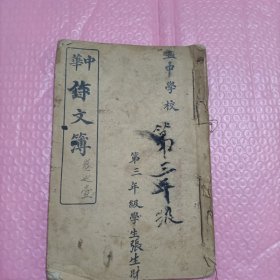 學校
第三年級
第三年級學生張生財
中華
作文簿
卷之壹